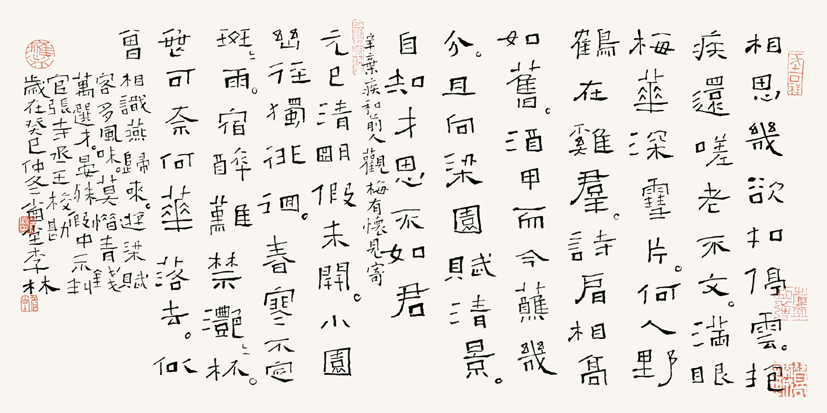 相思幾欲扣停雲。抱
疾還嗟老不文。滿眼
梅華深雪片。何人野
鶴在雞羣。詩肩相高
如舊。酒甲而今蘸幾
分。且向梁園賦清景。
自知才思不如君
辛棄疾和前人觀梅有懷見寄
元巳清明假未開。小園
幽徑獨徘徊。春寒不定
斑〻雨。宿醉難禁灩〻杯。
無可奈何華落去。似
曾
相識燕歸來。遊梁賦
客多風味。莫惜青錢
萬選才。晏殊假中示判
官張寺丞王校勘
歲在癸巳仲冬 堂李林